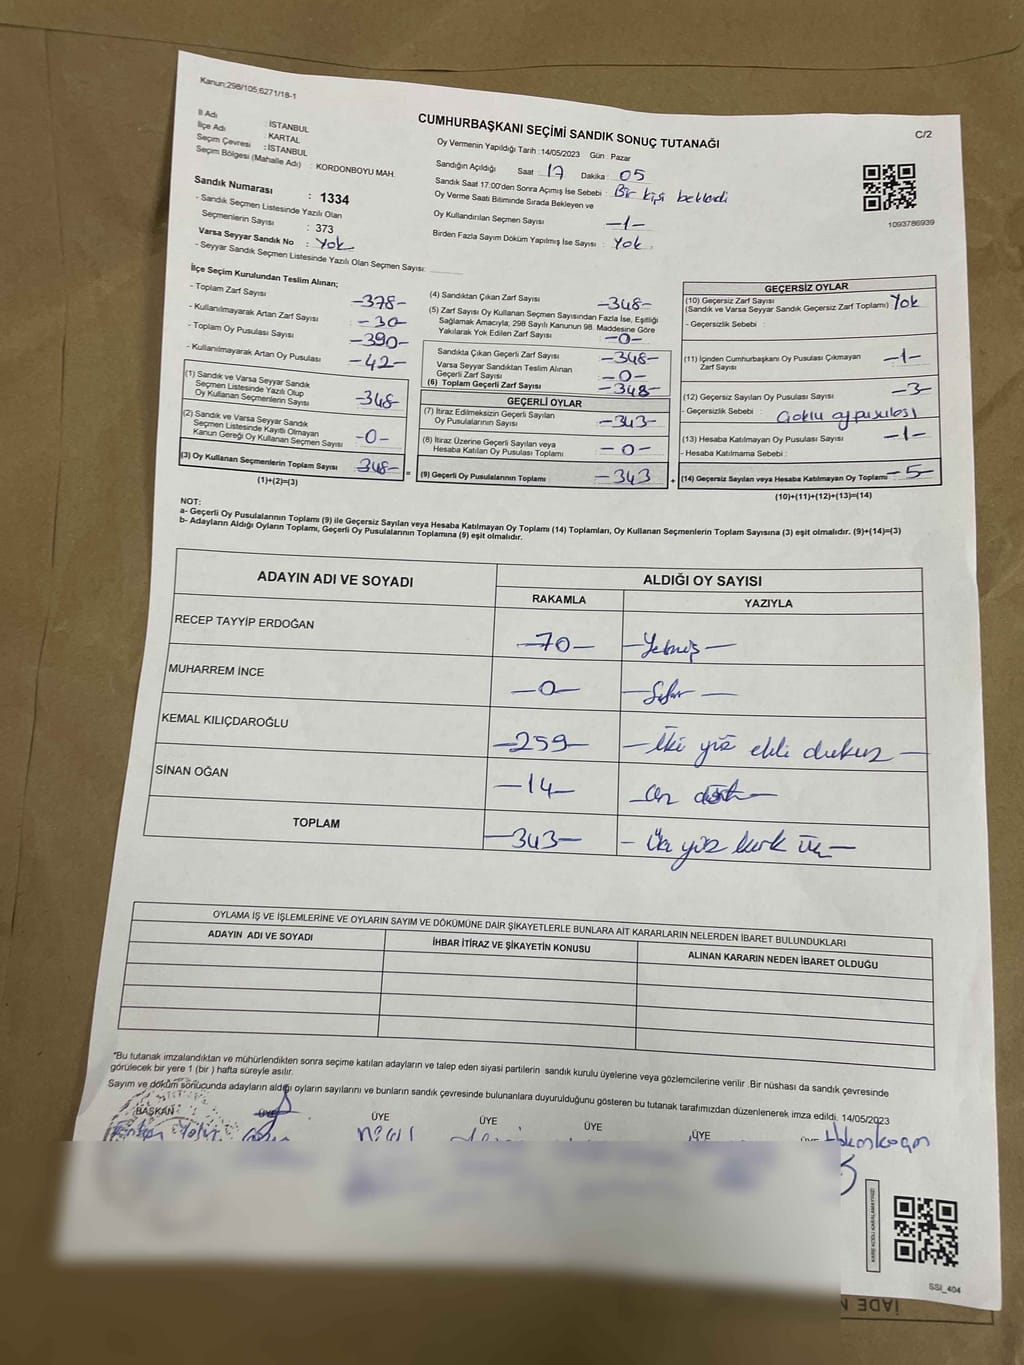 Kanun;298/105;6271/18-1
CUMHURBAŞKANI SEÇİMİ SANDIK SONUÇ TUTANAĞI
C/2
İl Adı : İSTANBUL
İlçe Adı : KARTAL
Seçim Çevresi : İSTANBUL
Seçim Bölgesi (Mahalle Adı) : KORDONBOYU MAH.
Sandık Numarası : 1334
- Sandık Seçmen Listesinde Yazılı Olan
Seçmenlerin Sayısı : 373
Varsa Seyyar Sandık No : Yok
- Seyyar Sandık Seçmen Listesinde Yazılı Olan Seçmen Sayısı:
Oy Vermenin Yapıldığı Tarih :14/05/2023 Gün : Pazar
Sandığın Açıldığı Saat 17 Dakika 05
Sandık Saat 17:00'den Sonra Açımış İse Sebebi : Bir kişi beklendi
Oy Verme Saati Bitiminde Sırada Bekleyen ve
Oy Kullandırılan Seçmen Sayısı -1-
Birden Fazla Sayım Döküm Yapılmış İse Sayısı : Yok
1093786939
İlçe Seçim Kurulundan Teslim Alınan;
- Toplam Zarf Sayısı -378-
- Kullanılmayarak Artan Zarf Sayısı -30-
- Toplam Oy Pusulası Sayısı -390-
- Kullanılmayarak Artan Oy Pusulası -42-
(1) Sandık ve Varsa Seyyar Sandık
Seçmen Listesinde Yazılı Olup
Oy Kullanan Seçmenlerin Sayısı -348-
(2) Sandık ve Varsa Seyyar Sandık
Seçmen Listesinde Kayıtlı Olmayan
Kanun Gereği Oy Kullanan Seçmen Sayısı -0-
(3) Oy Kullanan Seçmenlerin Toplam Sayısı 348-
(1)+(2)=(3)
=
(4) Sandıktan Çıkan Zarf Sayısı -348-
(5) Zarf Sayısı Oy Kullanan Seçmen Sayısından Fazla İse, Eşitliği
Sağlamak Amacıyla; 298 Sayılı Kanunun 98. Maddesine Göre
Yakılarak Yok Edilen Zarf Sayısı -0-
Sandıkta Çıkan Geçerli Zarf Sayısı -348-
Varsa Seyyar Sandıktan Teslim Alınan
Geçerli Zarf Sayısı -0-
(6) Toplam Geçerli Zarf Sayısı -348-
GEÇERLİ OYLAR
(7) İtiraz Edilmeksizin Geçerli Sayılan
Oy Pusulalarının Sayısı -343-
(8) İtiraz Üzerine Geçerli Sayılan veya
Hesaba Katılan Oy Pusulası Toplamı -0-
(9) Geçerli Oy Pusulalarının Toplamı -343
+
GEÇERSİZ OYLAR
(10) Geçersiz Zarf Sayısı
(Sandık ve Varsa Seyyar Sandık Geçersiz Zarf Toplamı) Yok
- Geçersizlik Sebebi :
(11) İçinden Cumhurbaşkanı Oy Pusulası Çıkmayan
Zarf Sayısı -1-
(12) Geçersiz Sayılan Oy Pusulası Sayısı -3-
- Geçersizlik Sebebi : Çoklu oy pusulası
(13) Hesaba Katılmayan Oy Pusulası Sayısı -1-
- Hesaba Katılmama Sebebi :
(14) Geçersiz Sayılan veya Hesaba Katılmayan Oy Toplamı -5-
(10)+(11)+(12)+(13)=(14)
NOT:
a- Geçerli Oy Pusulalarının Toplamı (9) ile Geçersiz Sayılan veya Hesaba Katılmayan Oy Toplamı (14) Toplamları, Oy Kullanan Seçmenlerin Toplam Sayısına (3) eşit olmalıdır. (9)+(14)=(3)
b- Adayların Aldığı Oyların Toplamı, Geçerli Oy Pusulalarının Toplamına (9) eşit olmalıdır.
ADAYIN ADI VE SOYADI
ALDIĞI OY SAYISI
RAKAMLA YAZIYLA
RECEP TAYYİP ERDOĞAN -70- -Yetmiş-
MUHARREM İNCE -0- -Sıfır-
KEMAL KILIÇDAROĞLU -259- -İki yüz elli dokuz-
SİNAN OĞAN -14- -On dört-
TOPLAM -343- -Üç yüz kırk üç-
OYLAMA İŞ VE İŞLEMLERİNE VE OYLARIN SAYIM VE DÖKÜMÜNE DAİR ŞİKAYETLERLE BUNLARA AİT KARARLARIN NELERDEN İBARET BULUNDUKLARI
ADAYIN ADI VE SOYADI İHBAR İTİRAZ VE ŞİKAYETİN KONUSU ALINAN KARARIN NEDEN İBARET OLDUĞU
*Bu tutanak imzalandıktan ve mühürlendikten sonra seçime katılan adayların ve talep eden siyasi partilerin sandık kurulu üyelerine veya gözlemcilerine verilir Bir nüshası da sandık çevresinde
görülecek bir yere 1 (bir ) hafta süreyle asılır.
Sayım ve döküm sonucunda adayların aldığı oyların sayılarını ve bunların sandık çevresinde bulunanlara duyurulduğunu gösteren bu tutanak tarafımızdan düzenlenerek imza edildi. 14/05/2023
BAŞKAN ÜYE ÜYE ÜYE ÜYE ÜYE
KARE KODU KARALAMAYINIZ!
SSİ_404
İADE